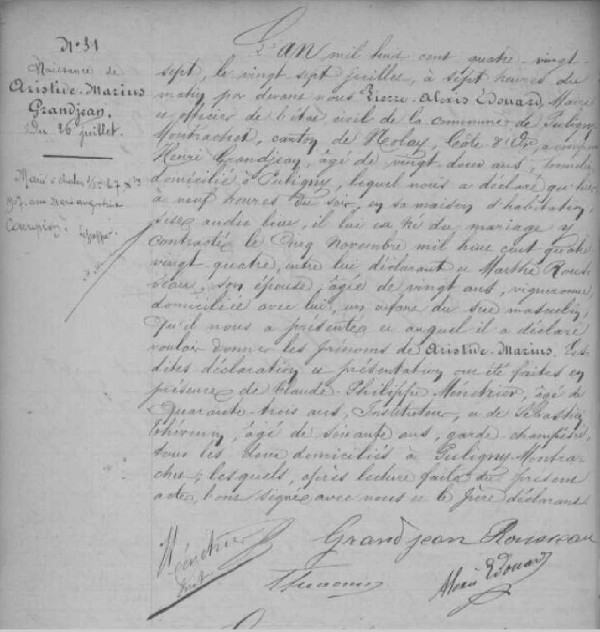 N° 31
Naissance de
Aristide-Marius
Grandjean.
Du 26 juillet.
Marié à
L'AN mil huit cent quatre-vingt
sept, le vingt sept juillet, à sept heures du
matin par devant nous Pierre-Alexis Edouard, Maire
et officier de l'état civil de la commune de Puligny
Montrachet, canton de Nolay, Côte d'Or, a comparu
Henri Grandjean, âgé de vingt deux ans,
domicilié à Puligny, lequel nous a déclaré que hier
à neuf heures du soir, en sa maison d'habitation,
sise audit lieu, il lui est né du mariage
contracté le cinq Novembre mil huit cent quatre
vingt quatre, entre lui déclarant et Marthe Rous-
seau, son épouse, âgée de vingt ans, vigneronne,
domiciliée avec lui, un enfant du sexe masculin,
Qu'il nous a présenté et auquel il a déclaré
vouloir donner les prénoms de Aristide-Marius. Les-
dites déclaration et présentation ont été faites en
présence de Claude Philippe Ménétrier, âgé de
Quarante trois ans, Instituteur, et de Sébastien
Thévenin, âgé de soixante ans, garde champêtre,
tous les deux domiciliés à Puligny-Montra-
chet; lesquels, après lecture faite du présent
acte, l'ont signé avec nous et le père déclarant
Ménétrier
Grandjean Rousseau
Thévenin
Alexis Edouard